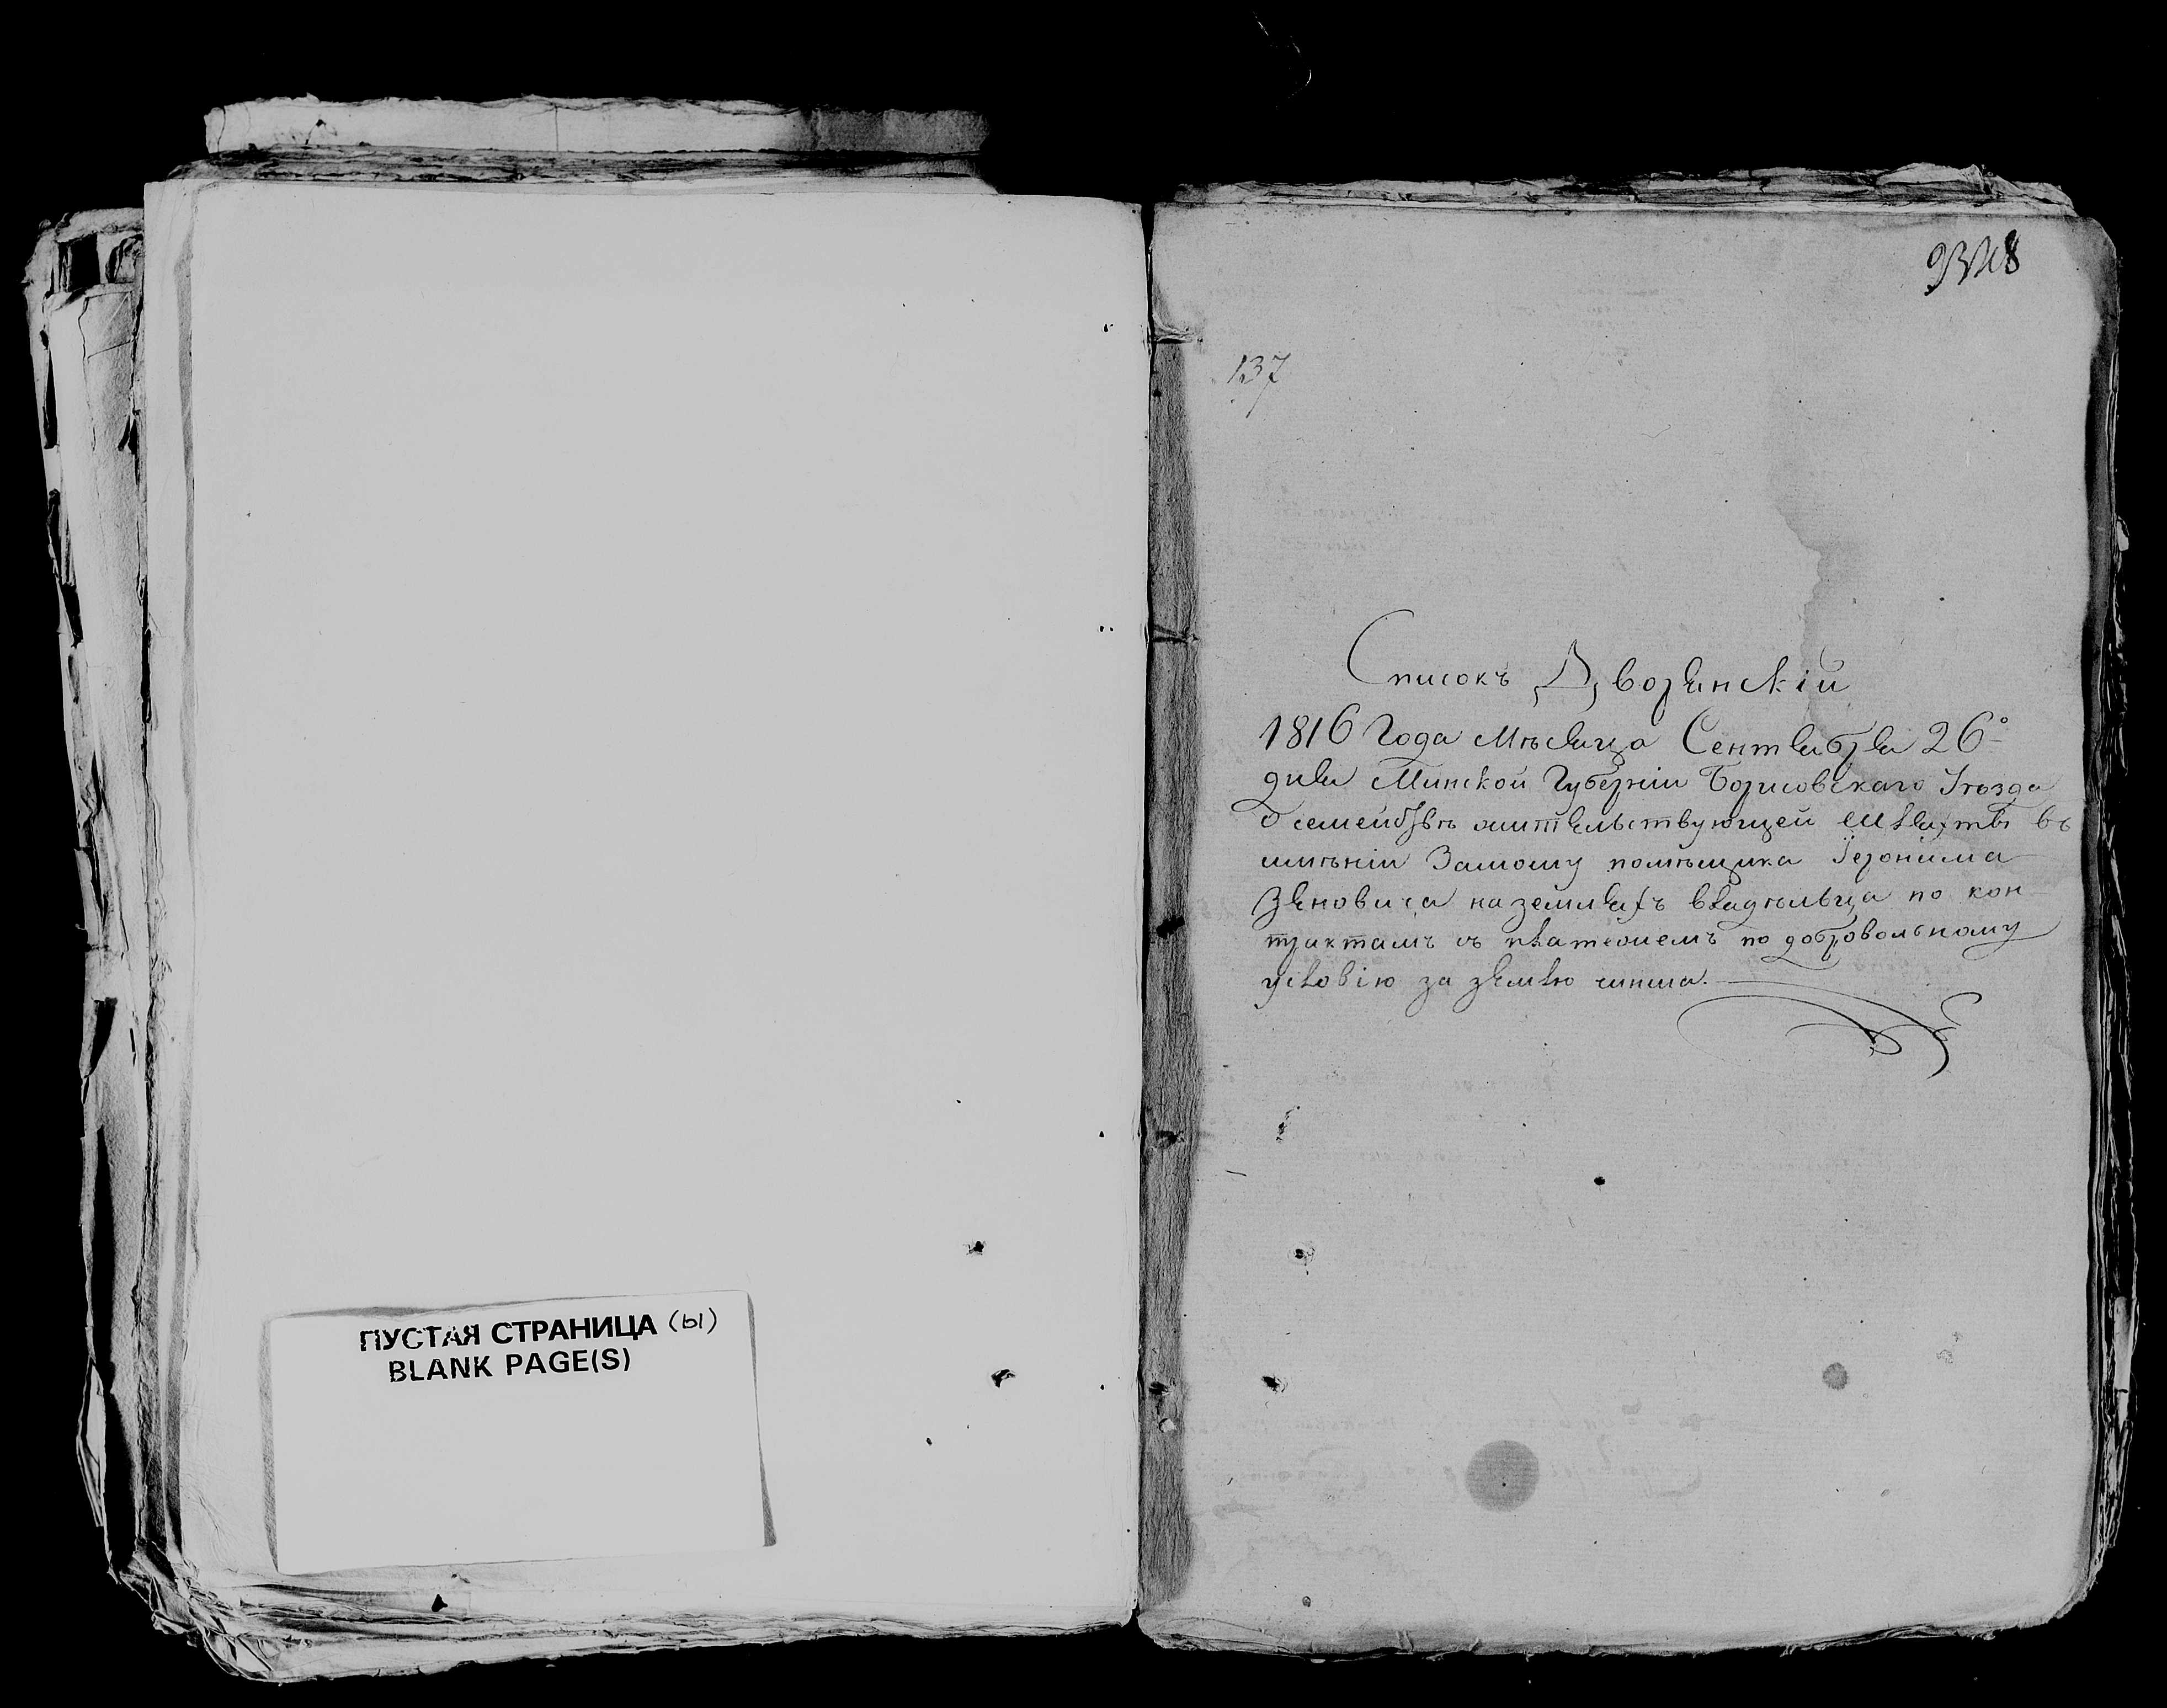 ПУСТАЯ СТРАНИЦА (ы)
BLANK PAGE(S)
137
Списокъ Дворянскій
1816 Года Мѣсяца Сентября 26°
дня Минской Губерніи Борисовскаго Уѣзда
о семействѣ жительствующей Шляхты въ
имѣніи Замошу помѣщика Іеронима
Зеновича на земляхъ владѣльца по кон
трактамъ съ платежемъ по добровольному
условію за землю чинша.